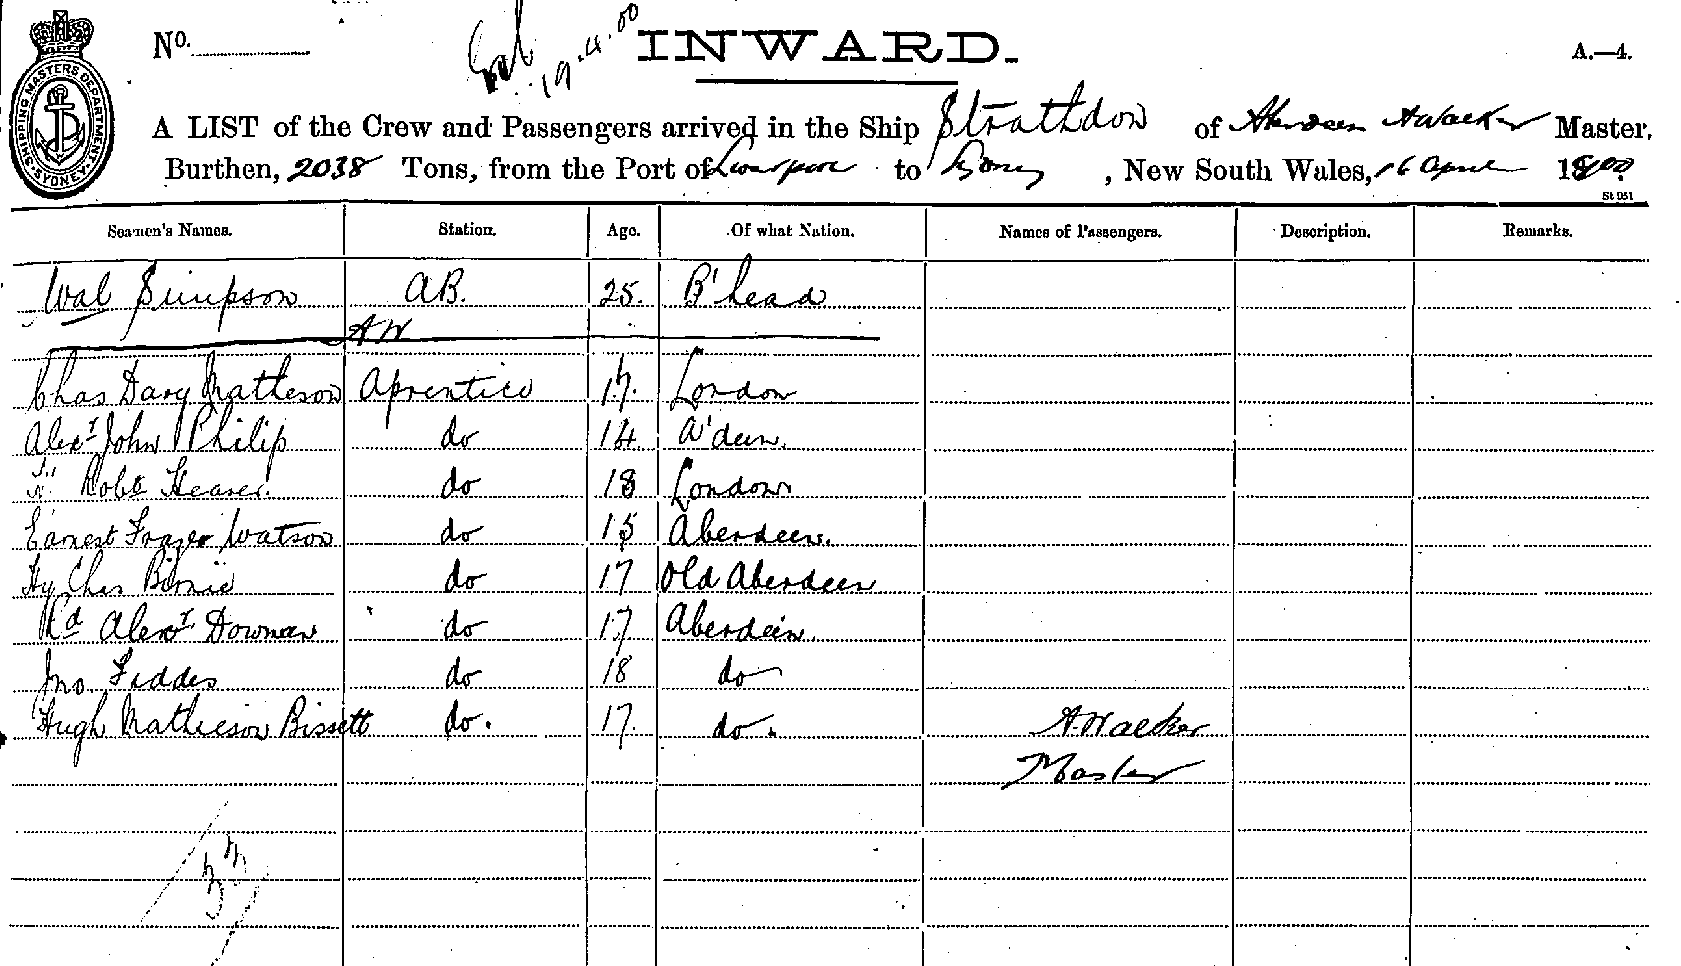 SHIPPING MASTERS DEPARTMENT
SYDNEY
No.
19.4.00
INWARD.
A.—4.
A LIST of the Crew and Passengers arrived in the Ship Strathdon of Aberdeen A Walker Master,
Burthen, 2038 Tons, from the Port of Liverpool to Sydney, New South Wales, 16 April 1900
St 951
Seamen's Names. Station. Age. Of what Nation. Names of Passengers. Description. Remarks.
Wal Simpson AB. 25. B'head
AW
Chas Davy Matheson Aprentice 17. London
Alexr John Philip do 14 A'deen.
Robt do 18 London
Earnest Frazer Watson do 15 Aberdeen.
Hy Chas Birnie do 17 Old Aberdeen
Rd Alexr Dowman do 17 Aberdein.
Jno Feddes do 18 do
Hugh Mathieson Bissett do. 17. do. A. Walker
Master
33